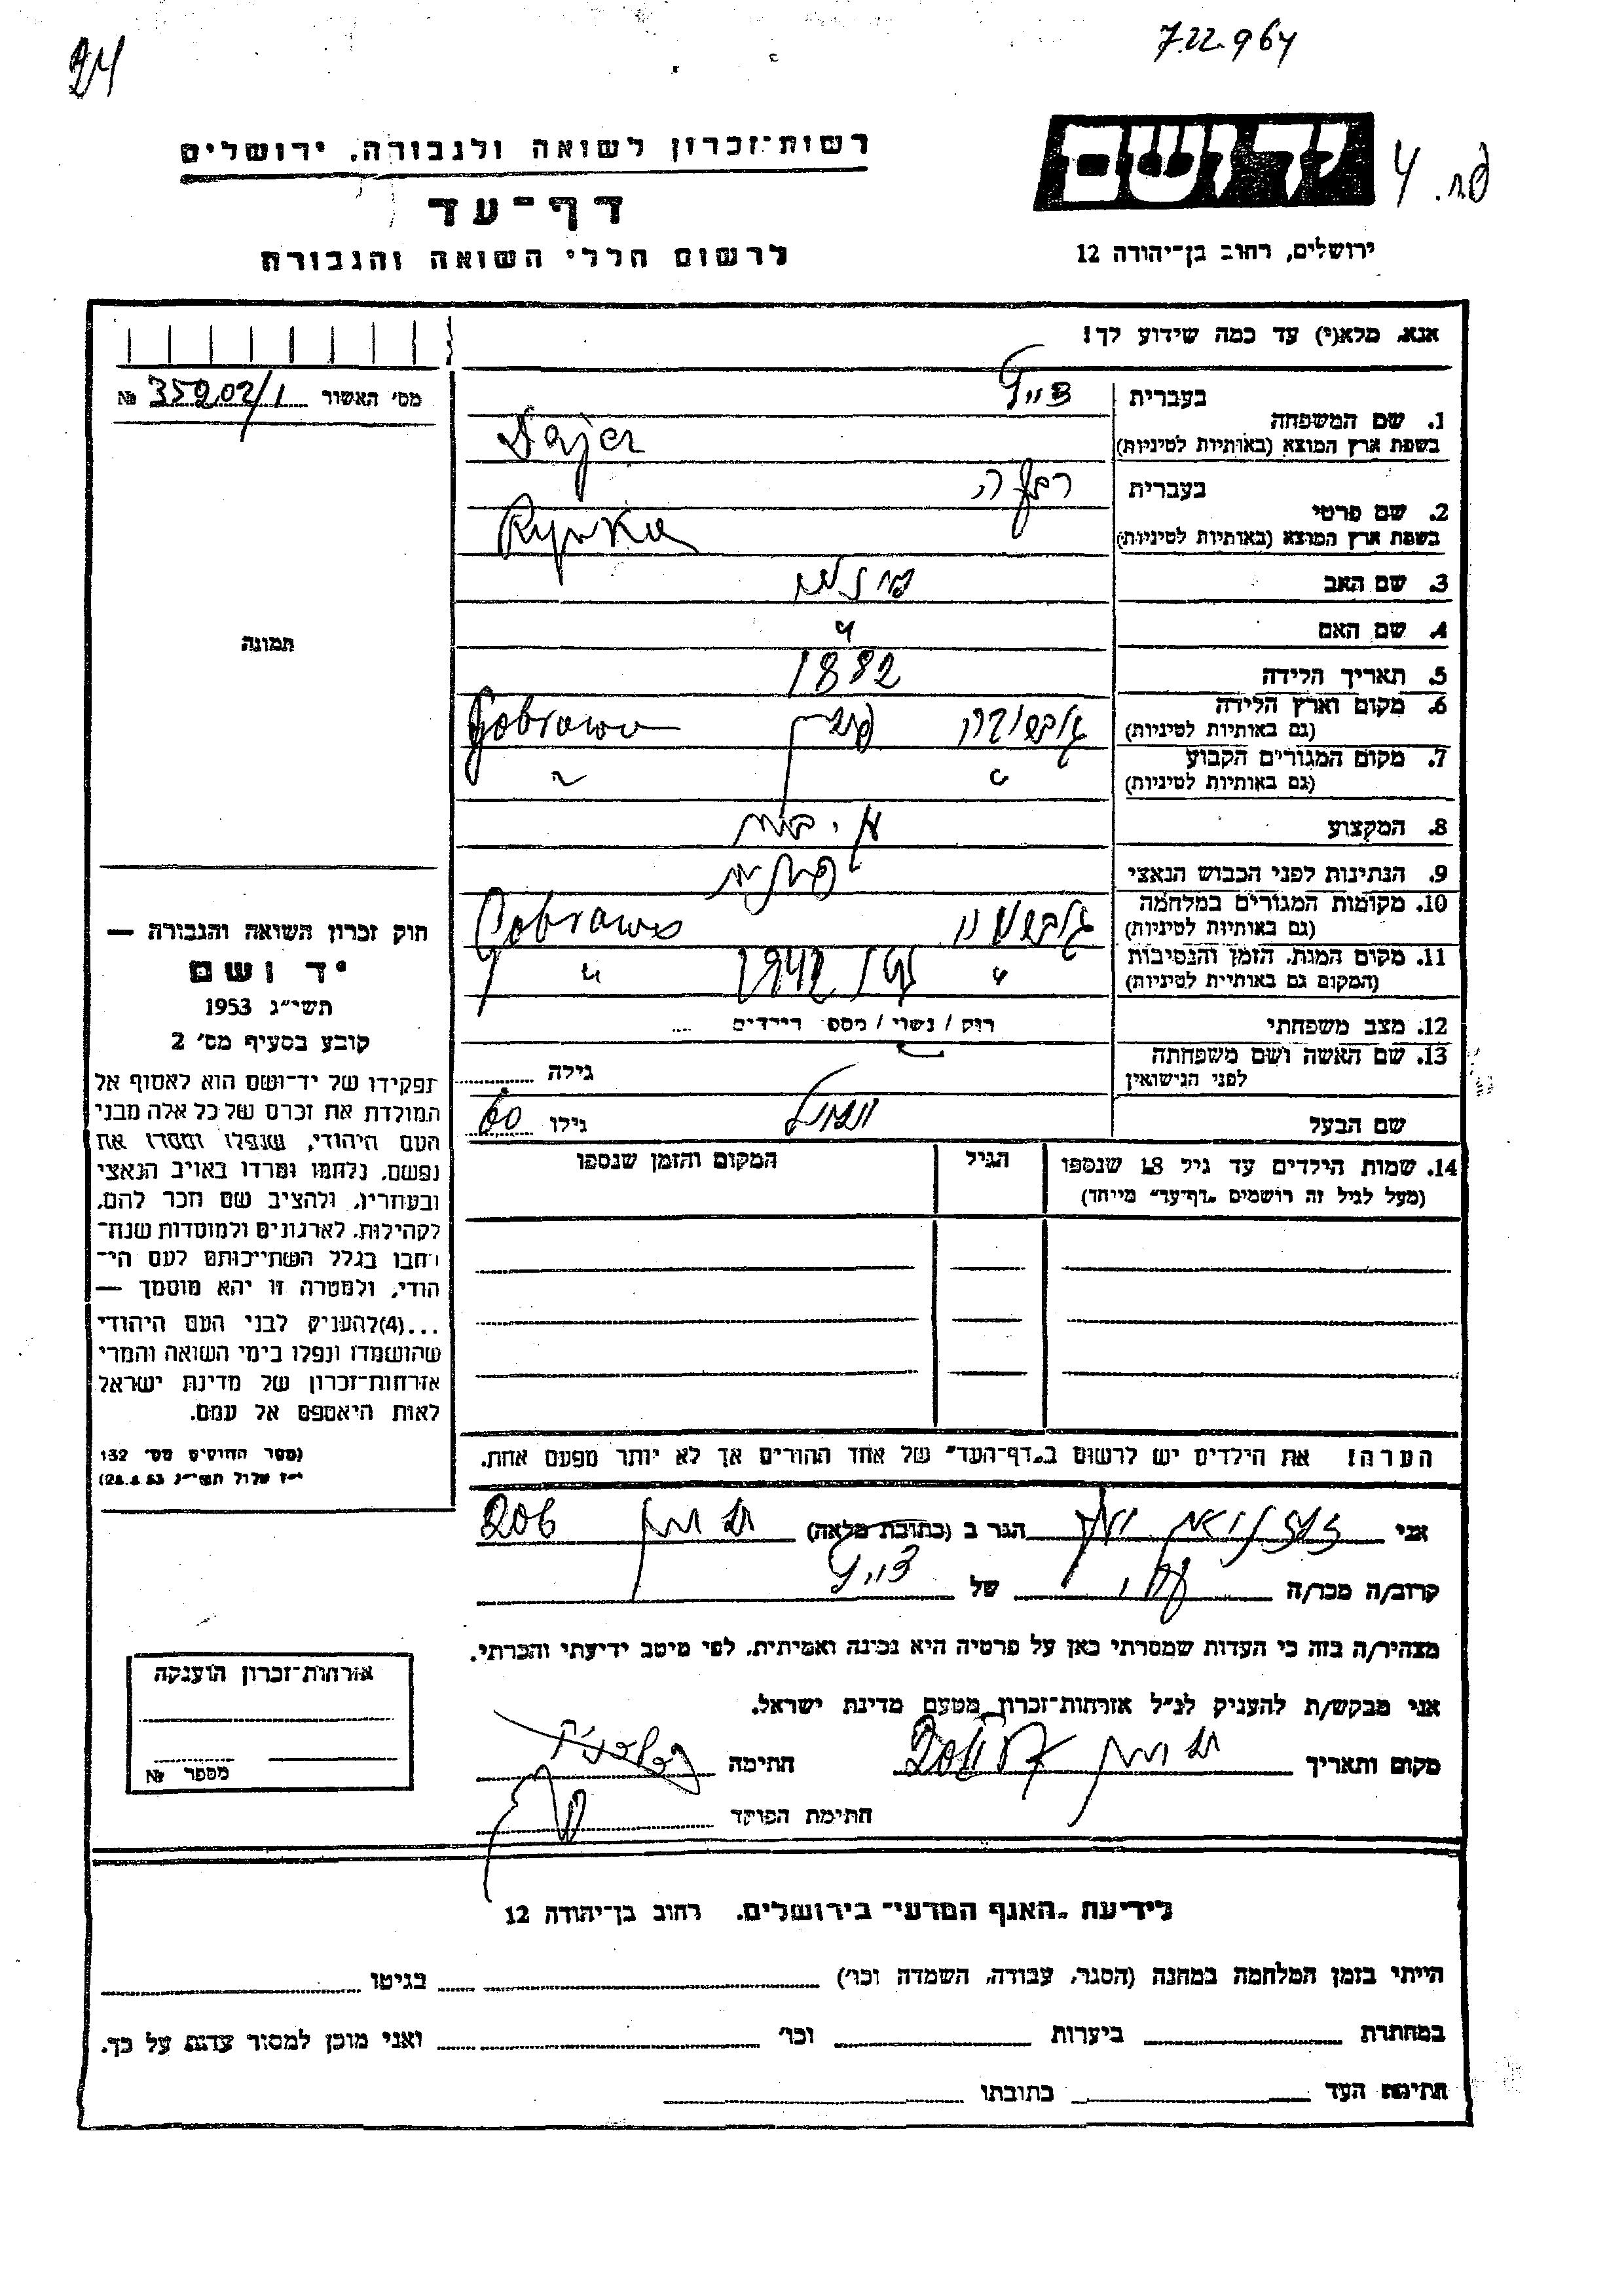 7.22.964
24
רשות־זכרון לשואה ולגבורה, ירושלים
יד ושם
דף־עד
ירושלים, רחוב בן־יהודה 12
לרשום חללי השואה והגבורה
אנא, מלא(י) עד כמה שידוע לך!
מס׳ האשור 359202/1 №
1. שם המשפחה
בעברית
בשפת ארץ המוצא (באותיות לטיניות) Dajer
2. שם פרטי
בעברית רבקה
בשפת ארץ המוצא (באותיות לטיניות) Rywka
3. שם האב
4. שם האם
תמונה
5. תאריך הלידה 1882
6. מקום וארץ הלידה
(גם באותיות לטיניות) פולין
7. מקום המגורים הקבוע
(גם באותיות לטיניות) "
8. המקצוע
9. הנתינות לפני הכבוש הנאצי פולנית
10. מקומות המגורים במלחמה
(גם באותיות לטיניות)
11. מקום המות, הזמן והנסיבות
(המקום גם באותיות לטיניות) " 1942 "
12. מצב משפחתי רוק / נשוי / מספר הילדים ...
13. שם האשה ושם משפחתה
לפני הנישואין גילה
שם הבעל גילו 60
14. שמות הילדים עד גיל 18 שנספו
(מעל לגיל זה רושמים „דף־עד״ מייחד)
הגיל
המקום והזמן שנספו
הערה! את הילדים יש לרשום ב„דף־העד״ של אחד ההורים אך לא יותר מפעם אחת.
חוק זכרון השואה והגבורה —
יד ושם
תשי״ג 1953
קובע בסעיף מס׳ 2
תפקידו של יד־ושם הוא לאסוף אל
המולדת את זכרם של כל אלה מבני
העם היהודי, שנפלו ומסרו את
נפשם, נלחמו ומרדו באויב הנאצי
ובעוזריו, ולהציב שם וזכר להם,
לקהילות, לארגונים ולמוסדות שנח־
רבו בגלל השתייכותם לעם הי־
הודי, ולמטרה זו יהא מוסמך —
...(4)להעניק לבני העם היהודי
שהושמדו ונפלו בימי השואה והמרי
אזרחות־זכרון של מדינת ישראל
לאות היאספם אל עמם.
(ספר החוקים מס׳ 132
י״ז אלול תשי״ג 28.8.53)
אני הגר ב (כתובת מלאה)
קרוב/ה מכר/ה של
מצהיר/ה בזה כי העדות שמסרתי כאן על פרטיה היא נכונה ואמיתית, לפי מיטב ידיעתי והכרתי.
אני מבקש/ת להעניק לנ״ל אזרחות־זכרון מטעם מדינת ישראל.
מקום ותאריך חתימה
חתימת הפוקד
אזרחות־זכרון הוענקה
מספר №
לידיעת „האגף המדעי״ בירושלים, רחוב בן־יהודה 12
הייתי בזמן המלחמה במחנה (הסגר, עבודה, השמדה וכו׳) בגיטו
במחתרת ביערות וכו׳ ואני מוכן למסור עדות על כך.
חתימת העד כתובתו